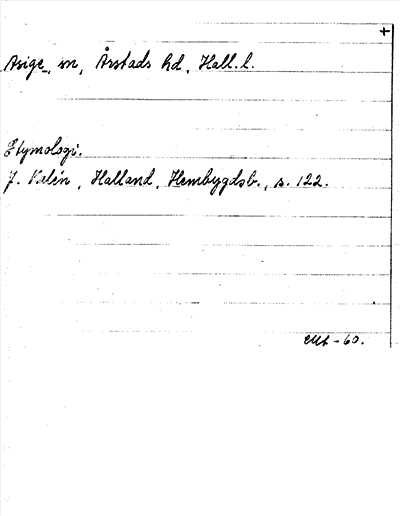 +
Asige, sn, Årstads hd, Hall. l.
Etymologi.
J. Kalén, Halland, Hembygdsb., s. 122.
-60.